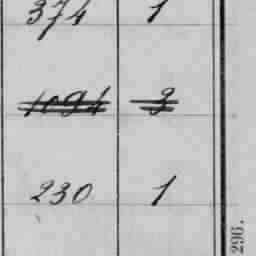 374 1
1094 3
230 1
296.